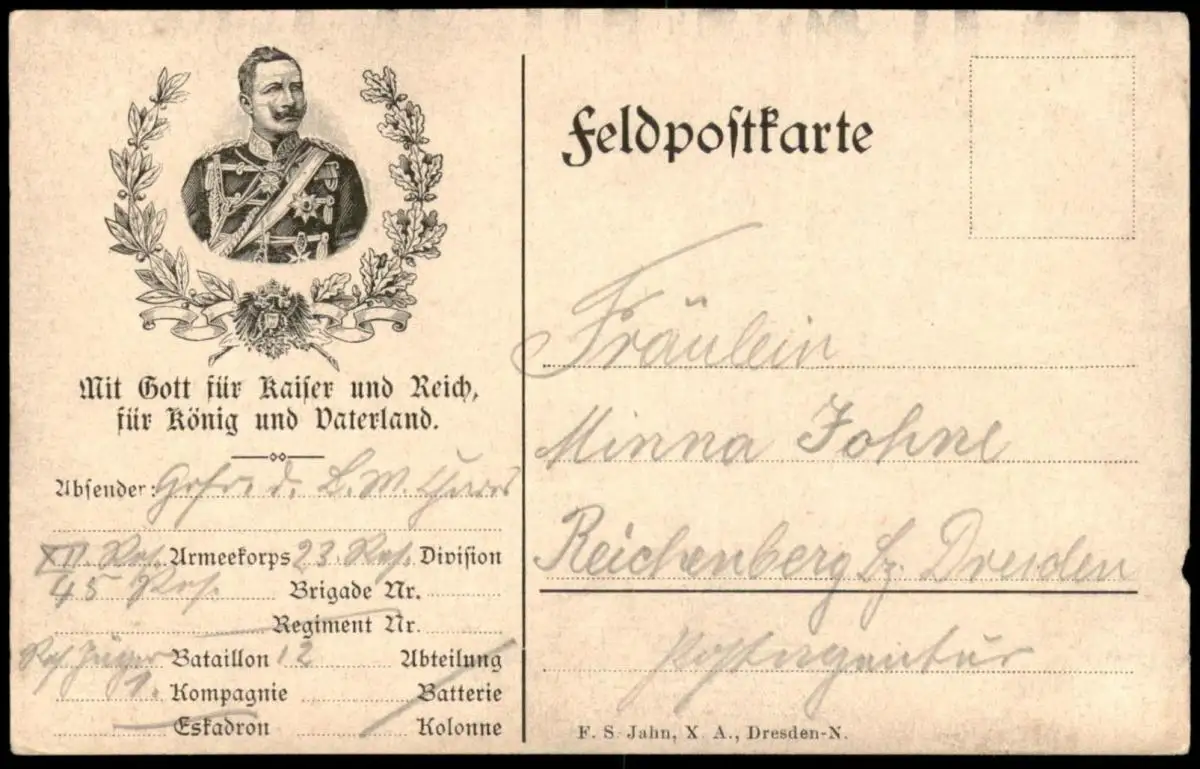 Mit Gott für Kaiser und Reich,
für König und Vaterland.
Absender: Gefr. d. L. W.
XII. Res. Armeekorps 23. Res. Division
45 Res. Brigade Nr.
Regiment Nr.
Res. Jäger Bataillon 12 Abteilung
1. Kompagnie Batterie
Eskadron Kolonne
Feldpostkarte
Fräulein
Minna Johne
Reichenberg bz. Dresden
Postagentur
F. S. Jahn, X. A., Dresden-N.